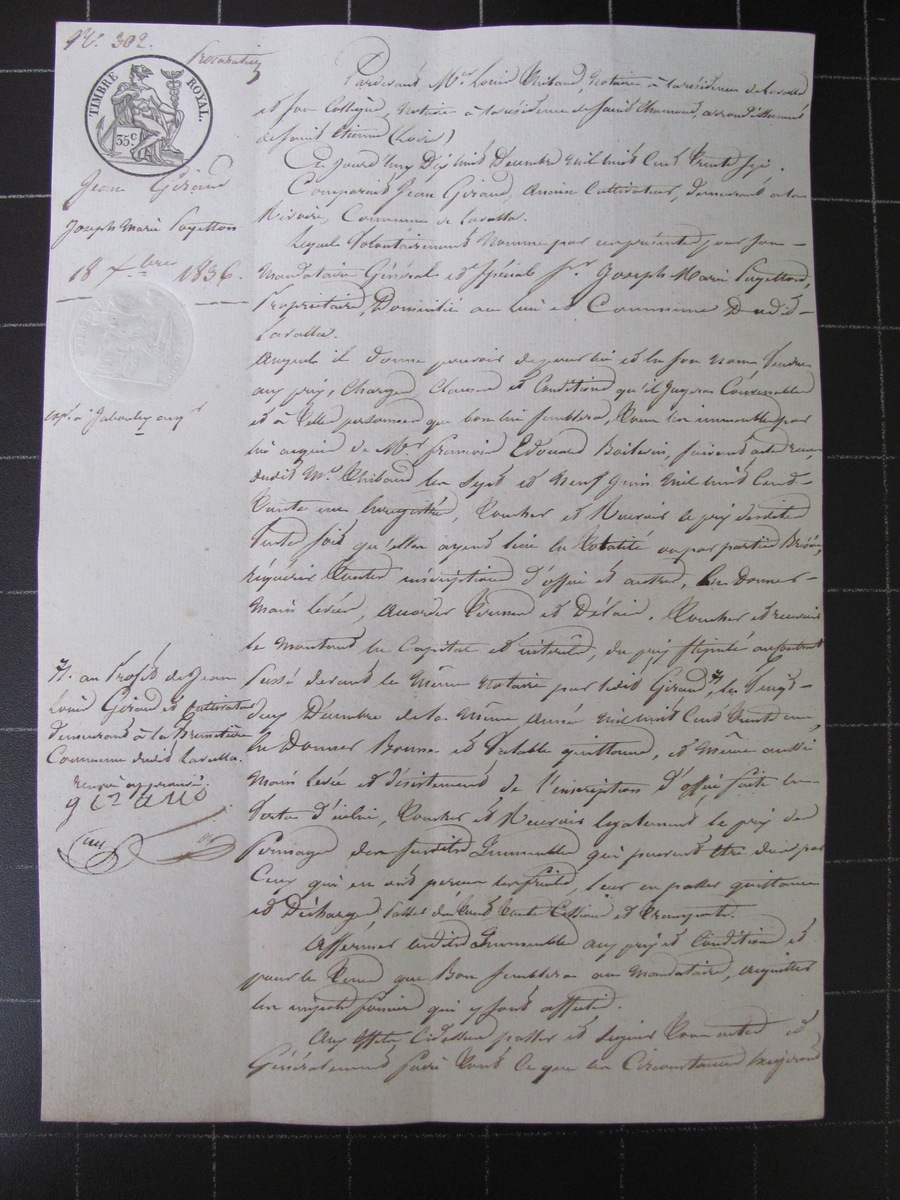 N°. 302.
Procuration
TIMBRE ROYAL.
35c
Jean Giraud
Joseph Marie Poyetton
18 Xbre 1836.
Pardevant Me. Louis Thibaud, Notaire à la résidence de Lavalla
et son Collègue, Notaire à la résidence de Saint Chamond, arrondissement
de Saint Etienne (Loire)
Ce jourd'huy Dix huit Décembre mil huit Cent Trente Six
Comparait Jean Giraud, Ancien Cultivateur, demeurant à la
Rivoire, Commune de Lavalla.
Lequel Volontairement Nomme par ces présentes pour son
Mandataire Général et Spécial Sr. Joseph Marie Poyetton,
Propriétaire, Domicilié au lieu et Commune Dudit
Lavalla.
Auquel il donne pouvoir de pour lui et en son Nom, Vendre
aux prix, Charges, Clauses et Conditions qu'il jugera Convenable
et à telles personnes que bon lui semblera, Tous les immeubles par
lui acquis de Mr. François Edouard, suivant acte reçu
dudit Me. Thibaud les Sept et Neuf Juin mil huit Cent
Trente un Enregistré, Toucher et Recevoir le prix desdites
Ventes soit qu'elles ayent lieu en totalité ou par parties Brisées,
Requérir toutes inscriptions d'office et autres, En Donner
Main levée, accorder Termes et Délais. Toucher et recevoir
le montant en Capital et intérêts, du prix stipulé au Contrat
Passé devant le même Notaire par ledit Giraud, le Vingt
deux Décembre de la même année mil huit Cent Trente un
En Donner Bonne et Valable quittance, et même aussi
Main levée et désistement de l'inscription d'office faite en
Vertu d'icelui, Toucher et Recevoir également le prix des
Fermages des susdits Immeubles qui peuvent être dus par
Ceux qui en ont perçu les fruits, leur en passer quittance
et Décharge, Passer du tout toute Cession et transports.
Affermer lesdits Immeubles aux prix et Conditions et
pour le Terme que Bon semblera au Mandataire, acquitter
les impôts fonciers qui y sont affectés.
Aux effets Cidessus passer et signer tous actes et
Généralement faire tout ce que les Circonstances exigeront
expé. a Jabouley
au Profit de Jean
Louis Giraud et Cultivateur
demeurant à la
Commune dudit Lavalla.
Renvoi approuvé.